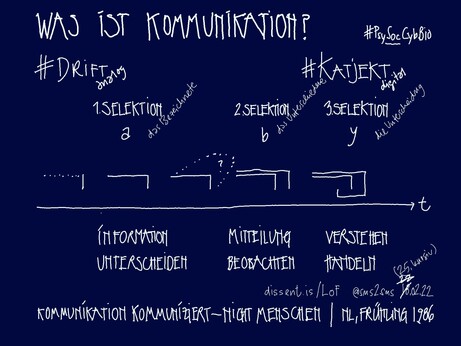 WAS IST KOMMUNIKATION?
#PsySocCybBio
#DRIFT analog
#KATJEKT digital
1. SELEKTION
das Bezeichnete
a
2. SELEKTION
das Unterschiedene
b
3. SELEKTION
die Unterscheidung
y
?
t
INFORMATION
MITTEILUNG
VERSTEHEN
UNTERSCHEIDEN
BEOBACHTEN
HANDELN
dissent.is/LoF @sms2sms .02.22
KOMMUNIKATION KOMMUNIZIERT—NICHT MENSCHEN | NL, FRÜHLING 1986